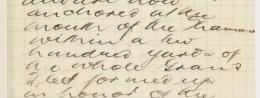 anchored at the
mouth of the Thames
within a few
hundred yards of
the whole Trans
Fleet formed up
in honor of the